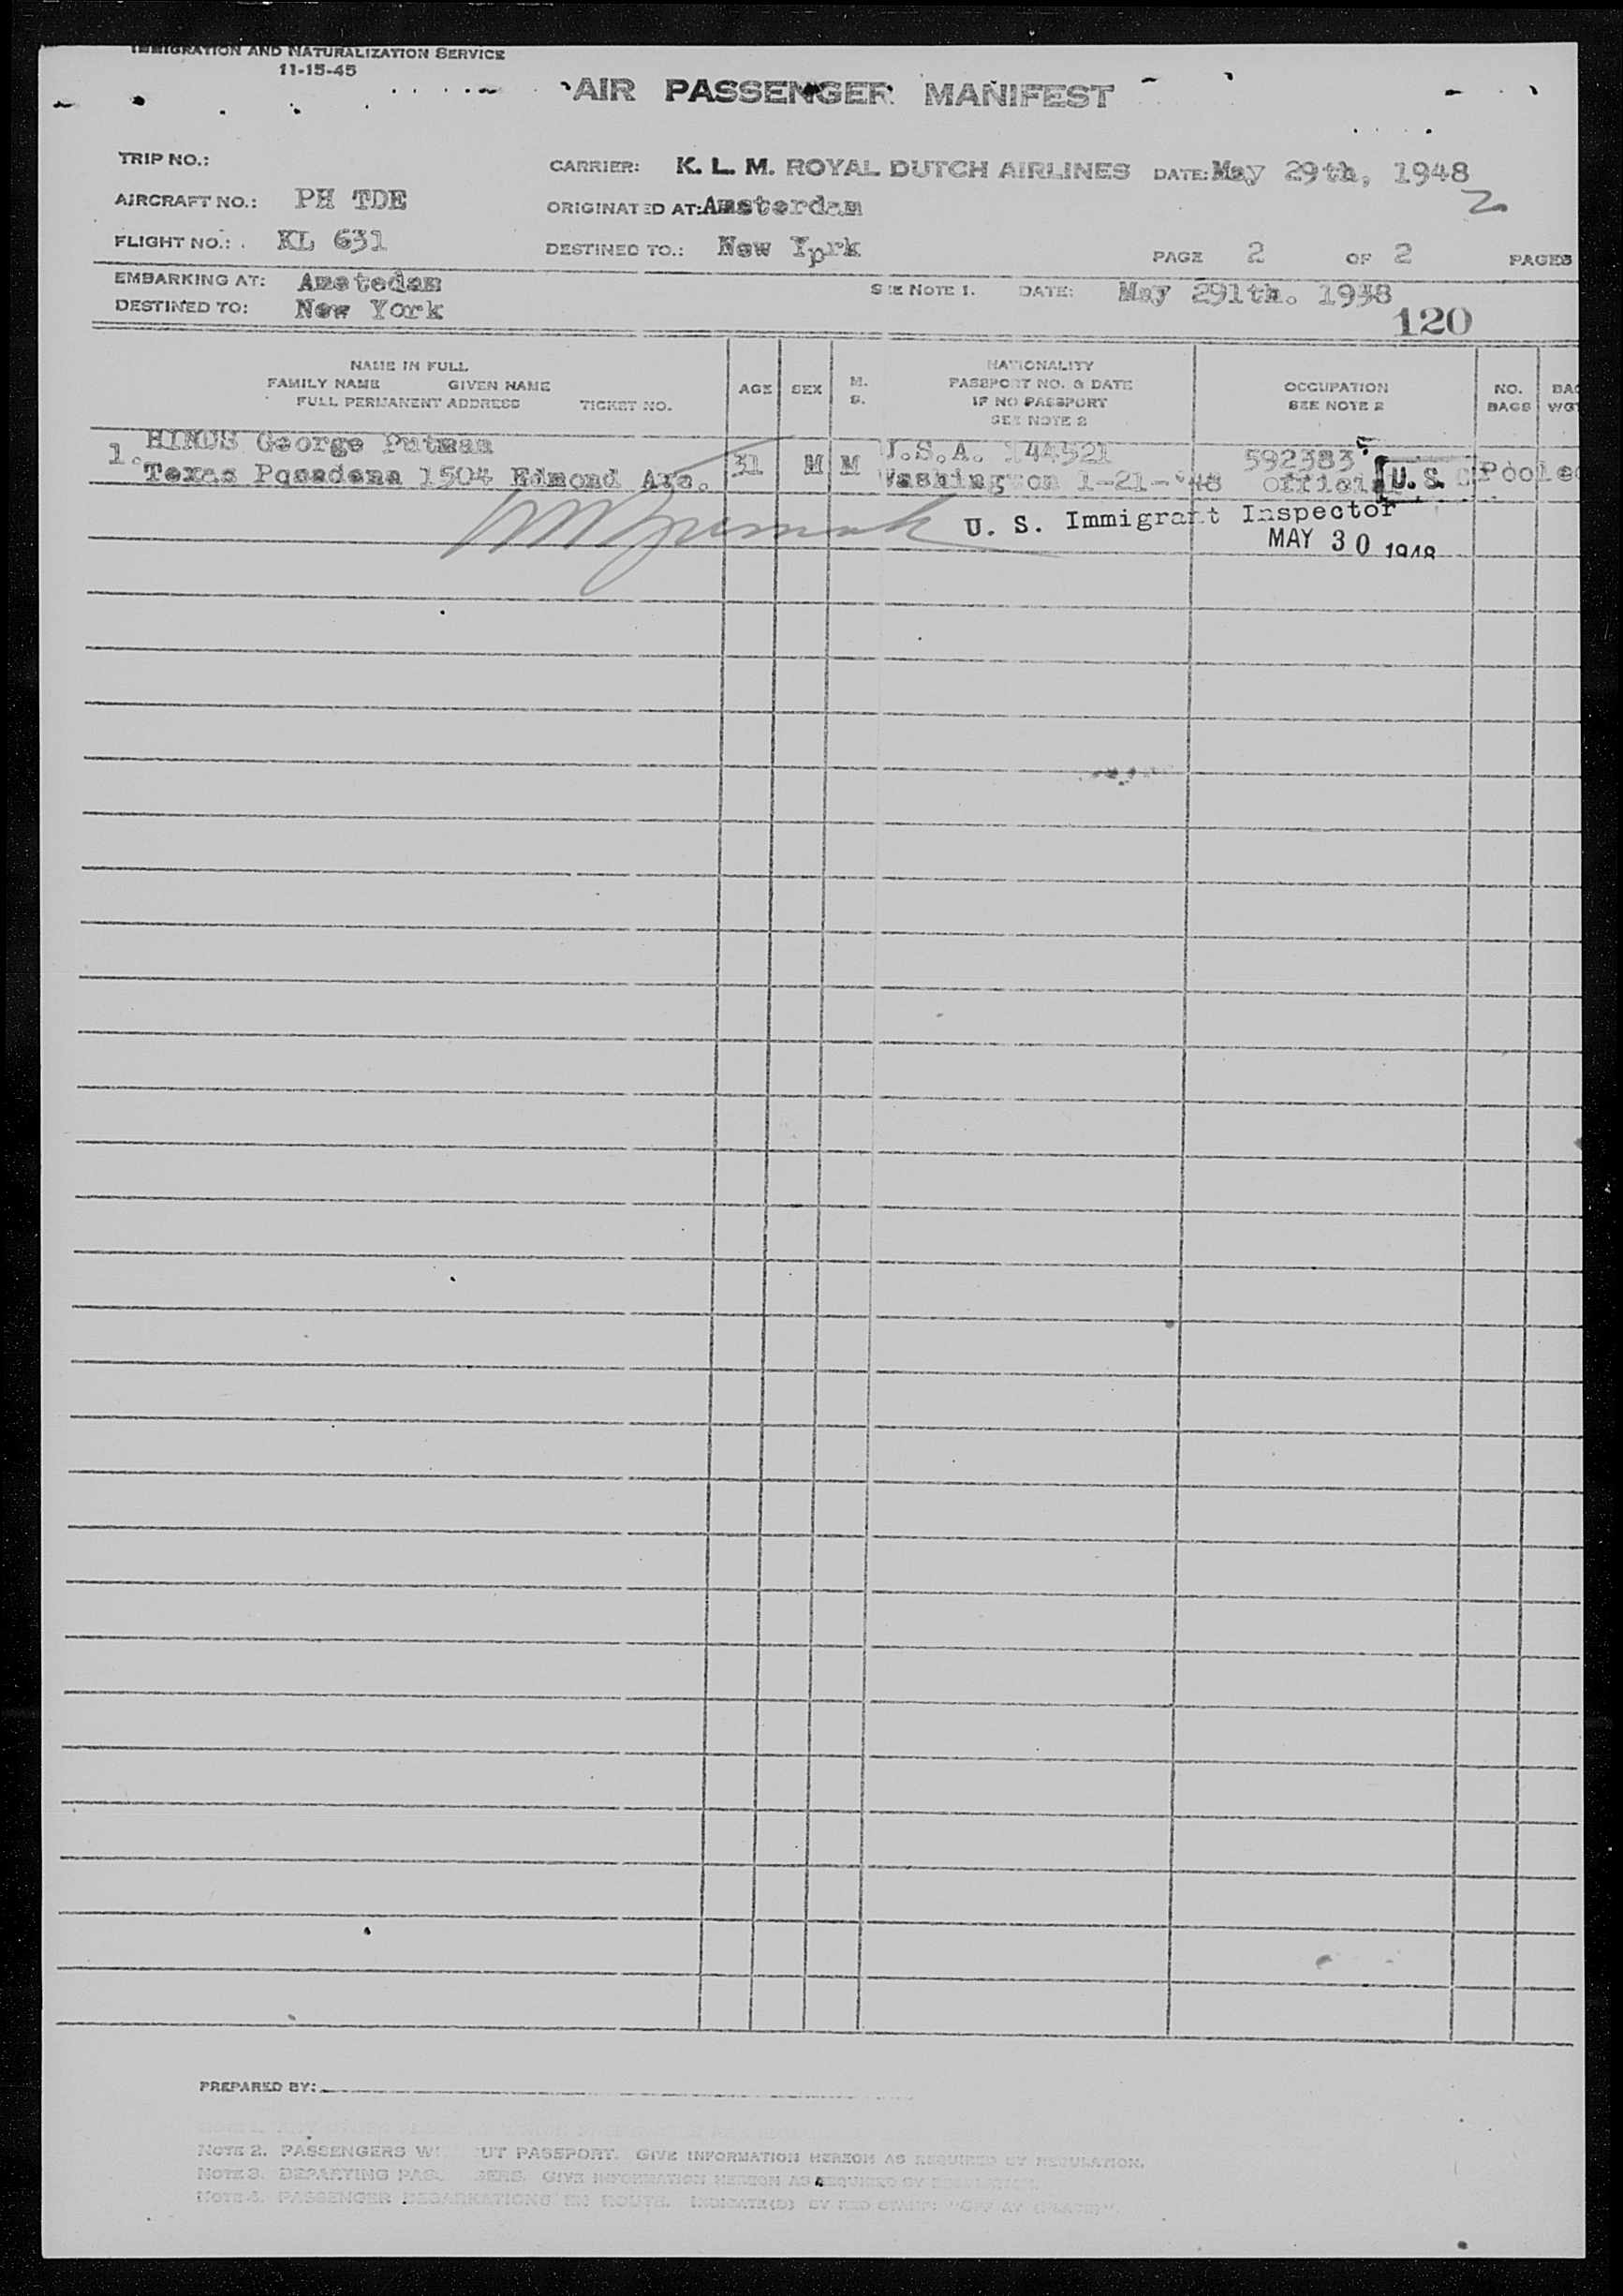 IMMIGRATION AND NATURALIZATION SERVICE
11-15-45
AIR PASSENGER MANIFEST
TRIP NO.:
CARRIER: K. L. M. ROYAL DUTCH AIRLINES DATE: May 29th, 1948
2
AIRCRAFT NO.: PH TDE
ORIGINATED AT: Amsterdam
FLIGHT NO.: KL 631
DESTINED TO.: New Yprk
PAGE 2 OF 2 PAGES
EMBARKING AT: Amstedam
SEE NOTE 1. DATE: May 291th. 1948
DESTINED TO: New York
120
NAME IN FULL
FAMILY NAME GIVEN NAME
FULL PERMANENT ADDRESS TICKET NO.
AGE SEX M. S.
NATIONALITY
PASSPORT NO. & DATE
IF NO PASSPORT
SEE NOTE 2
OCCUPATION
SEE NOTE 2
NO. BAGS
BAG WGT
1. George Putman
Texas Pasadena 1504 Edmond Ave. 31 M M
U.S.A. 144521
Washington 1-21-'48
592383
Official U. S. C Pooled
U. S. Immigrant Inspector
MAY 30 1948
PREPARED BY:
NOTE 2. PASSENGERS WITHOUT PASSPORT. GIVE INFORMATION HEREON AS REQUIRED BY REGULATION.
NOTE 3. DEPARTING PASSENGERS. GIVE INFORMATION HEREON AS REQUIRED BY REGULATION.
PASSENGER DEBARKATIONS EN ROUTE. INDICATE(D) BY RED STAMP: "OFF AT (PLACE)".